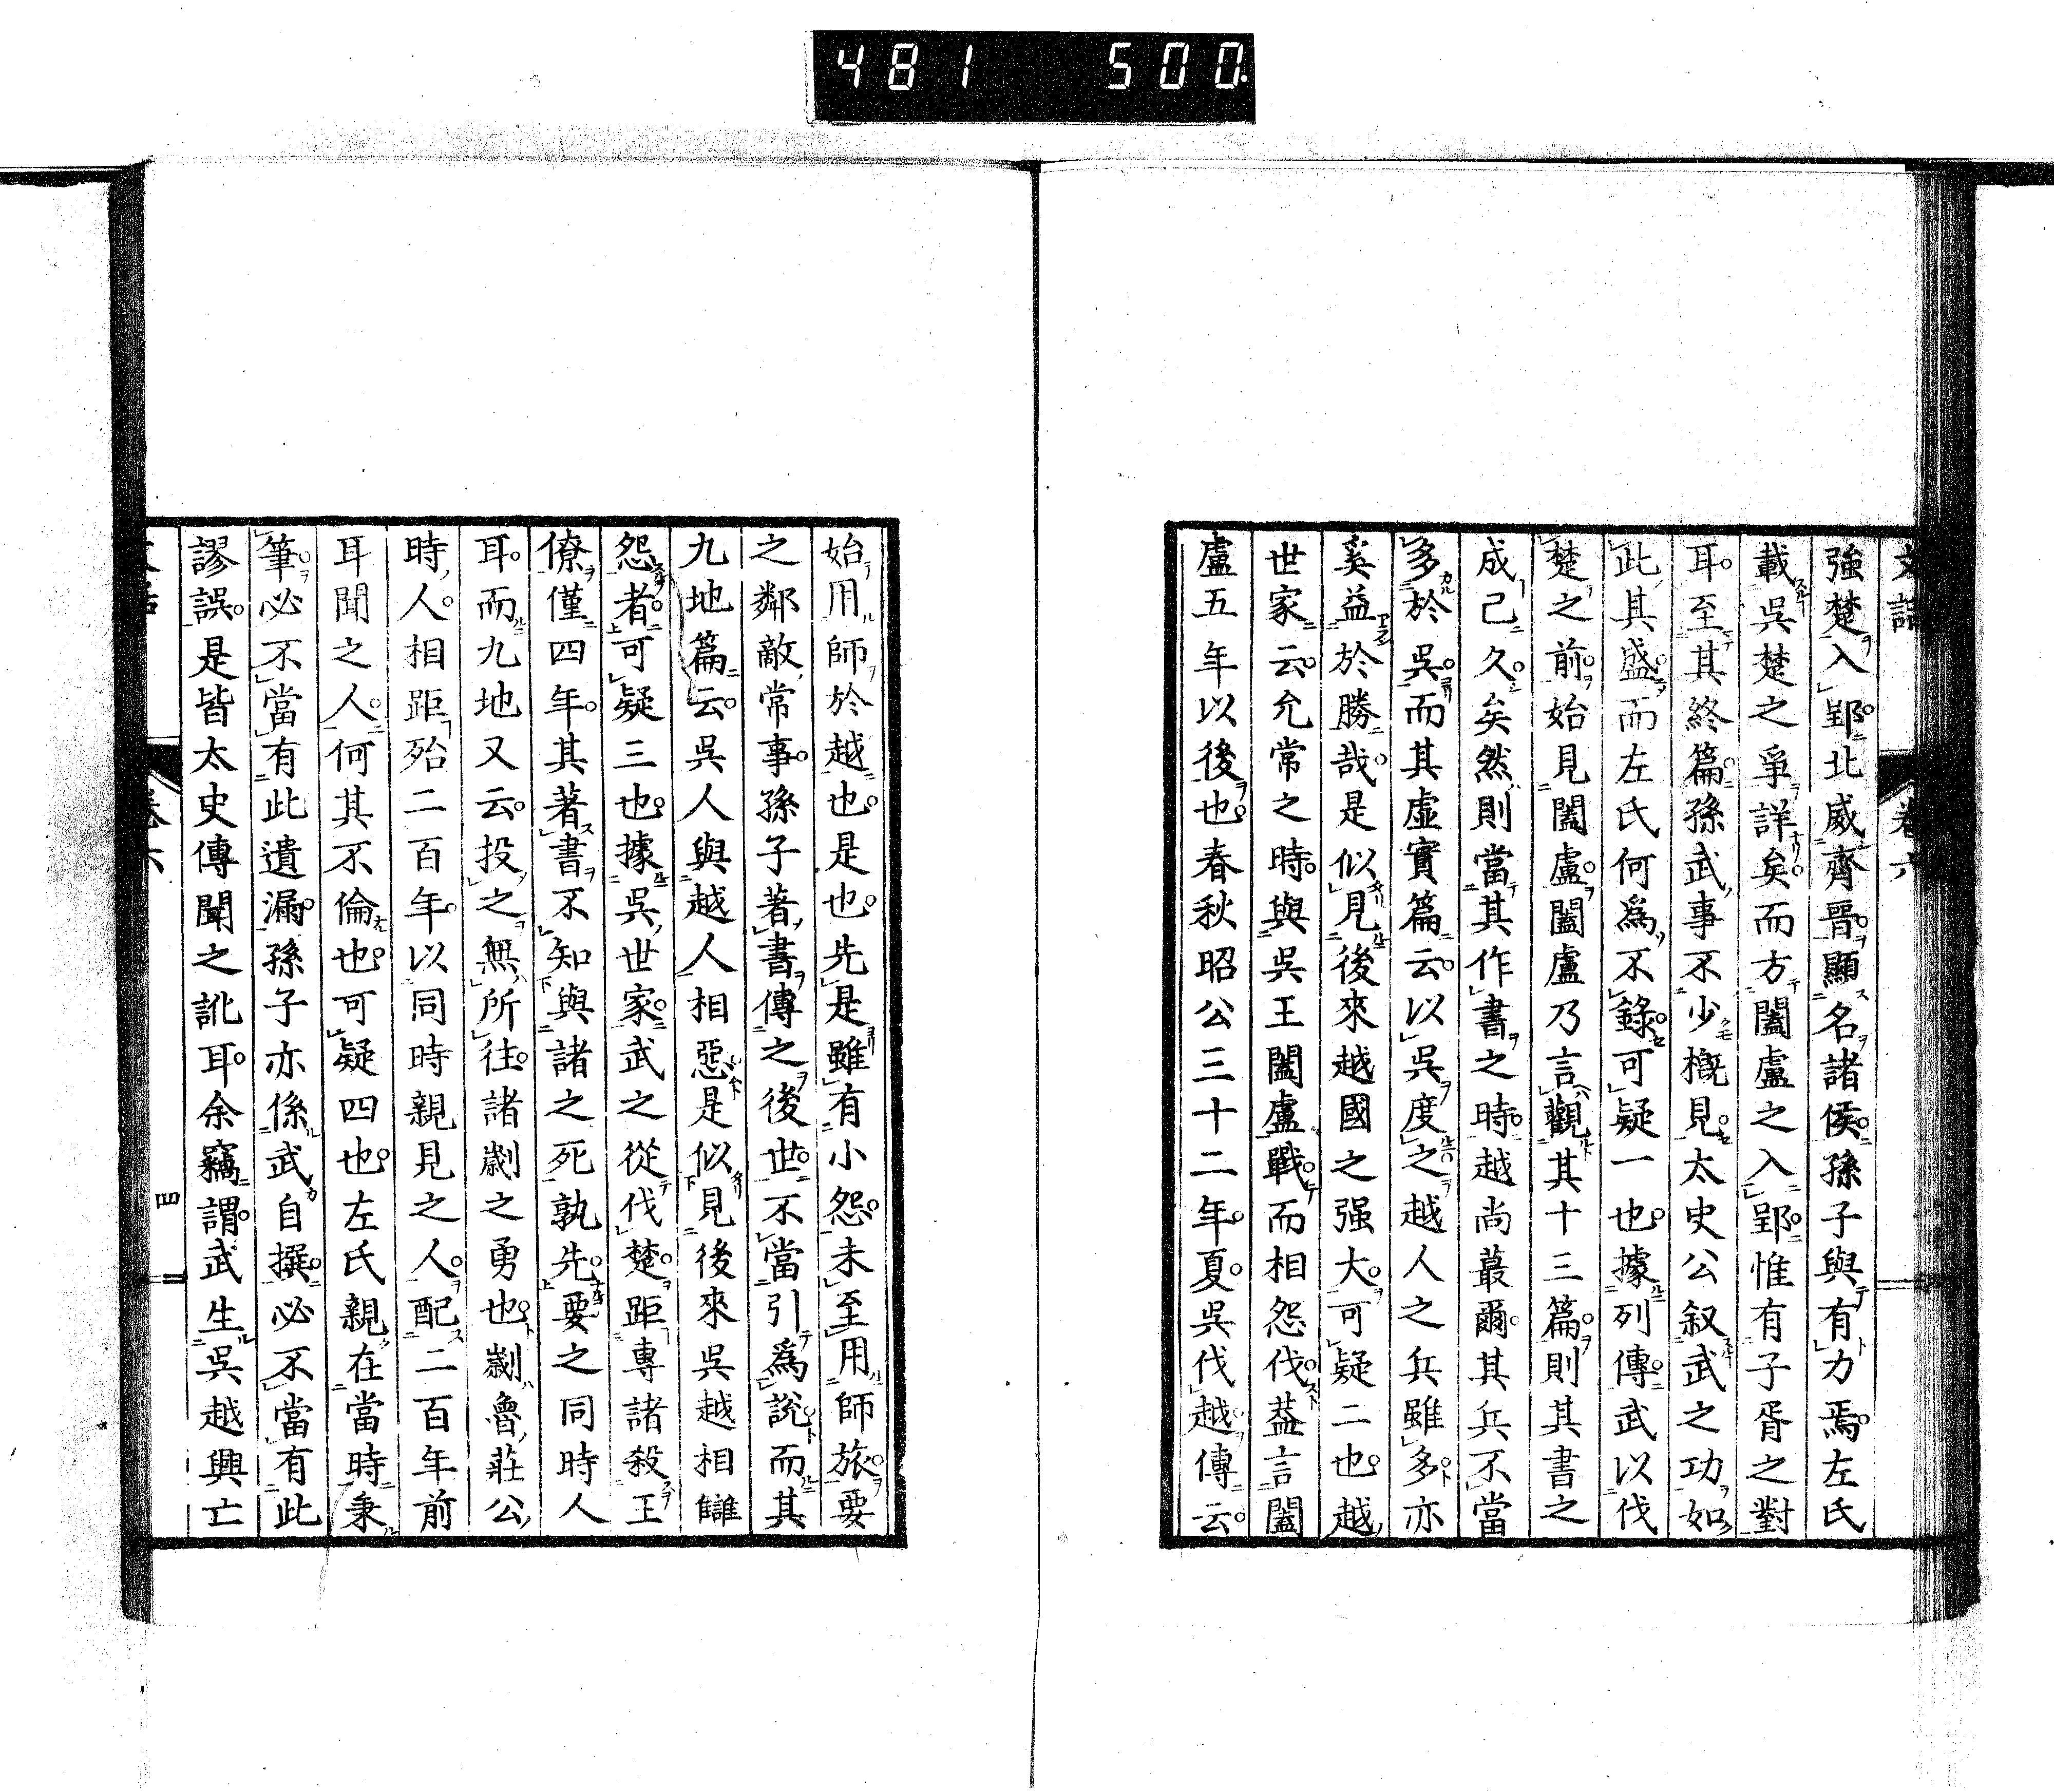 481 500
文話 卷六
強楚入郢北威齊晋顯名諸侯孫子與有力焉左氏
載吳楚之爭詳矣而方闔盧之入郢惟有子胥之對
耳至其終篇孫武事不少槪見太史公叙武之功如
此其盛而左氏何爲不錄可疑一也據列傳武以伐
楚之前始見闔盧闔盧乃言觀其十三篇則其書之
成已久矣然則當其作書之時越尚蕞爾其兵不當
多於吳而其虛實篇云以吳度之越人之兵雖多亦
奚益於勝哉是似見後來越國之强大可疑二也越
世家云允常之時與吳王闔盧戰而相怨伐葢言闔
盧五年以後也春秋昭公三十二年夏吳伐越傳云
始用師於越也是也先是雖有小怨未至用師旅要
之鄰敵常事孫子著書傳之後世不當引爲說而其
九地篇云吳人與越人相惡是似見後來吳越相讎
怨者可疑三也據吳世家武之從伐楚距專諸殺王
僚僅四年其著書不知與諸之死孰先要之同時人
耳而九地又云投之無所往諸劌之勇也劌魯莊公
時人相距殆二百年以同時親見之人配二百年前
耳聞之人何其不倫也可疑四也左氏親在當時秉
筆必不當有此遺漏孫子亦係武自撰必不當有此
謬誤是皆太史傳聞之訛耳余竊謂武生吳越興亡
卷六
四